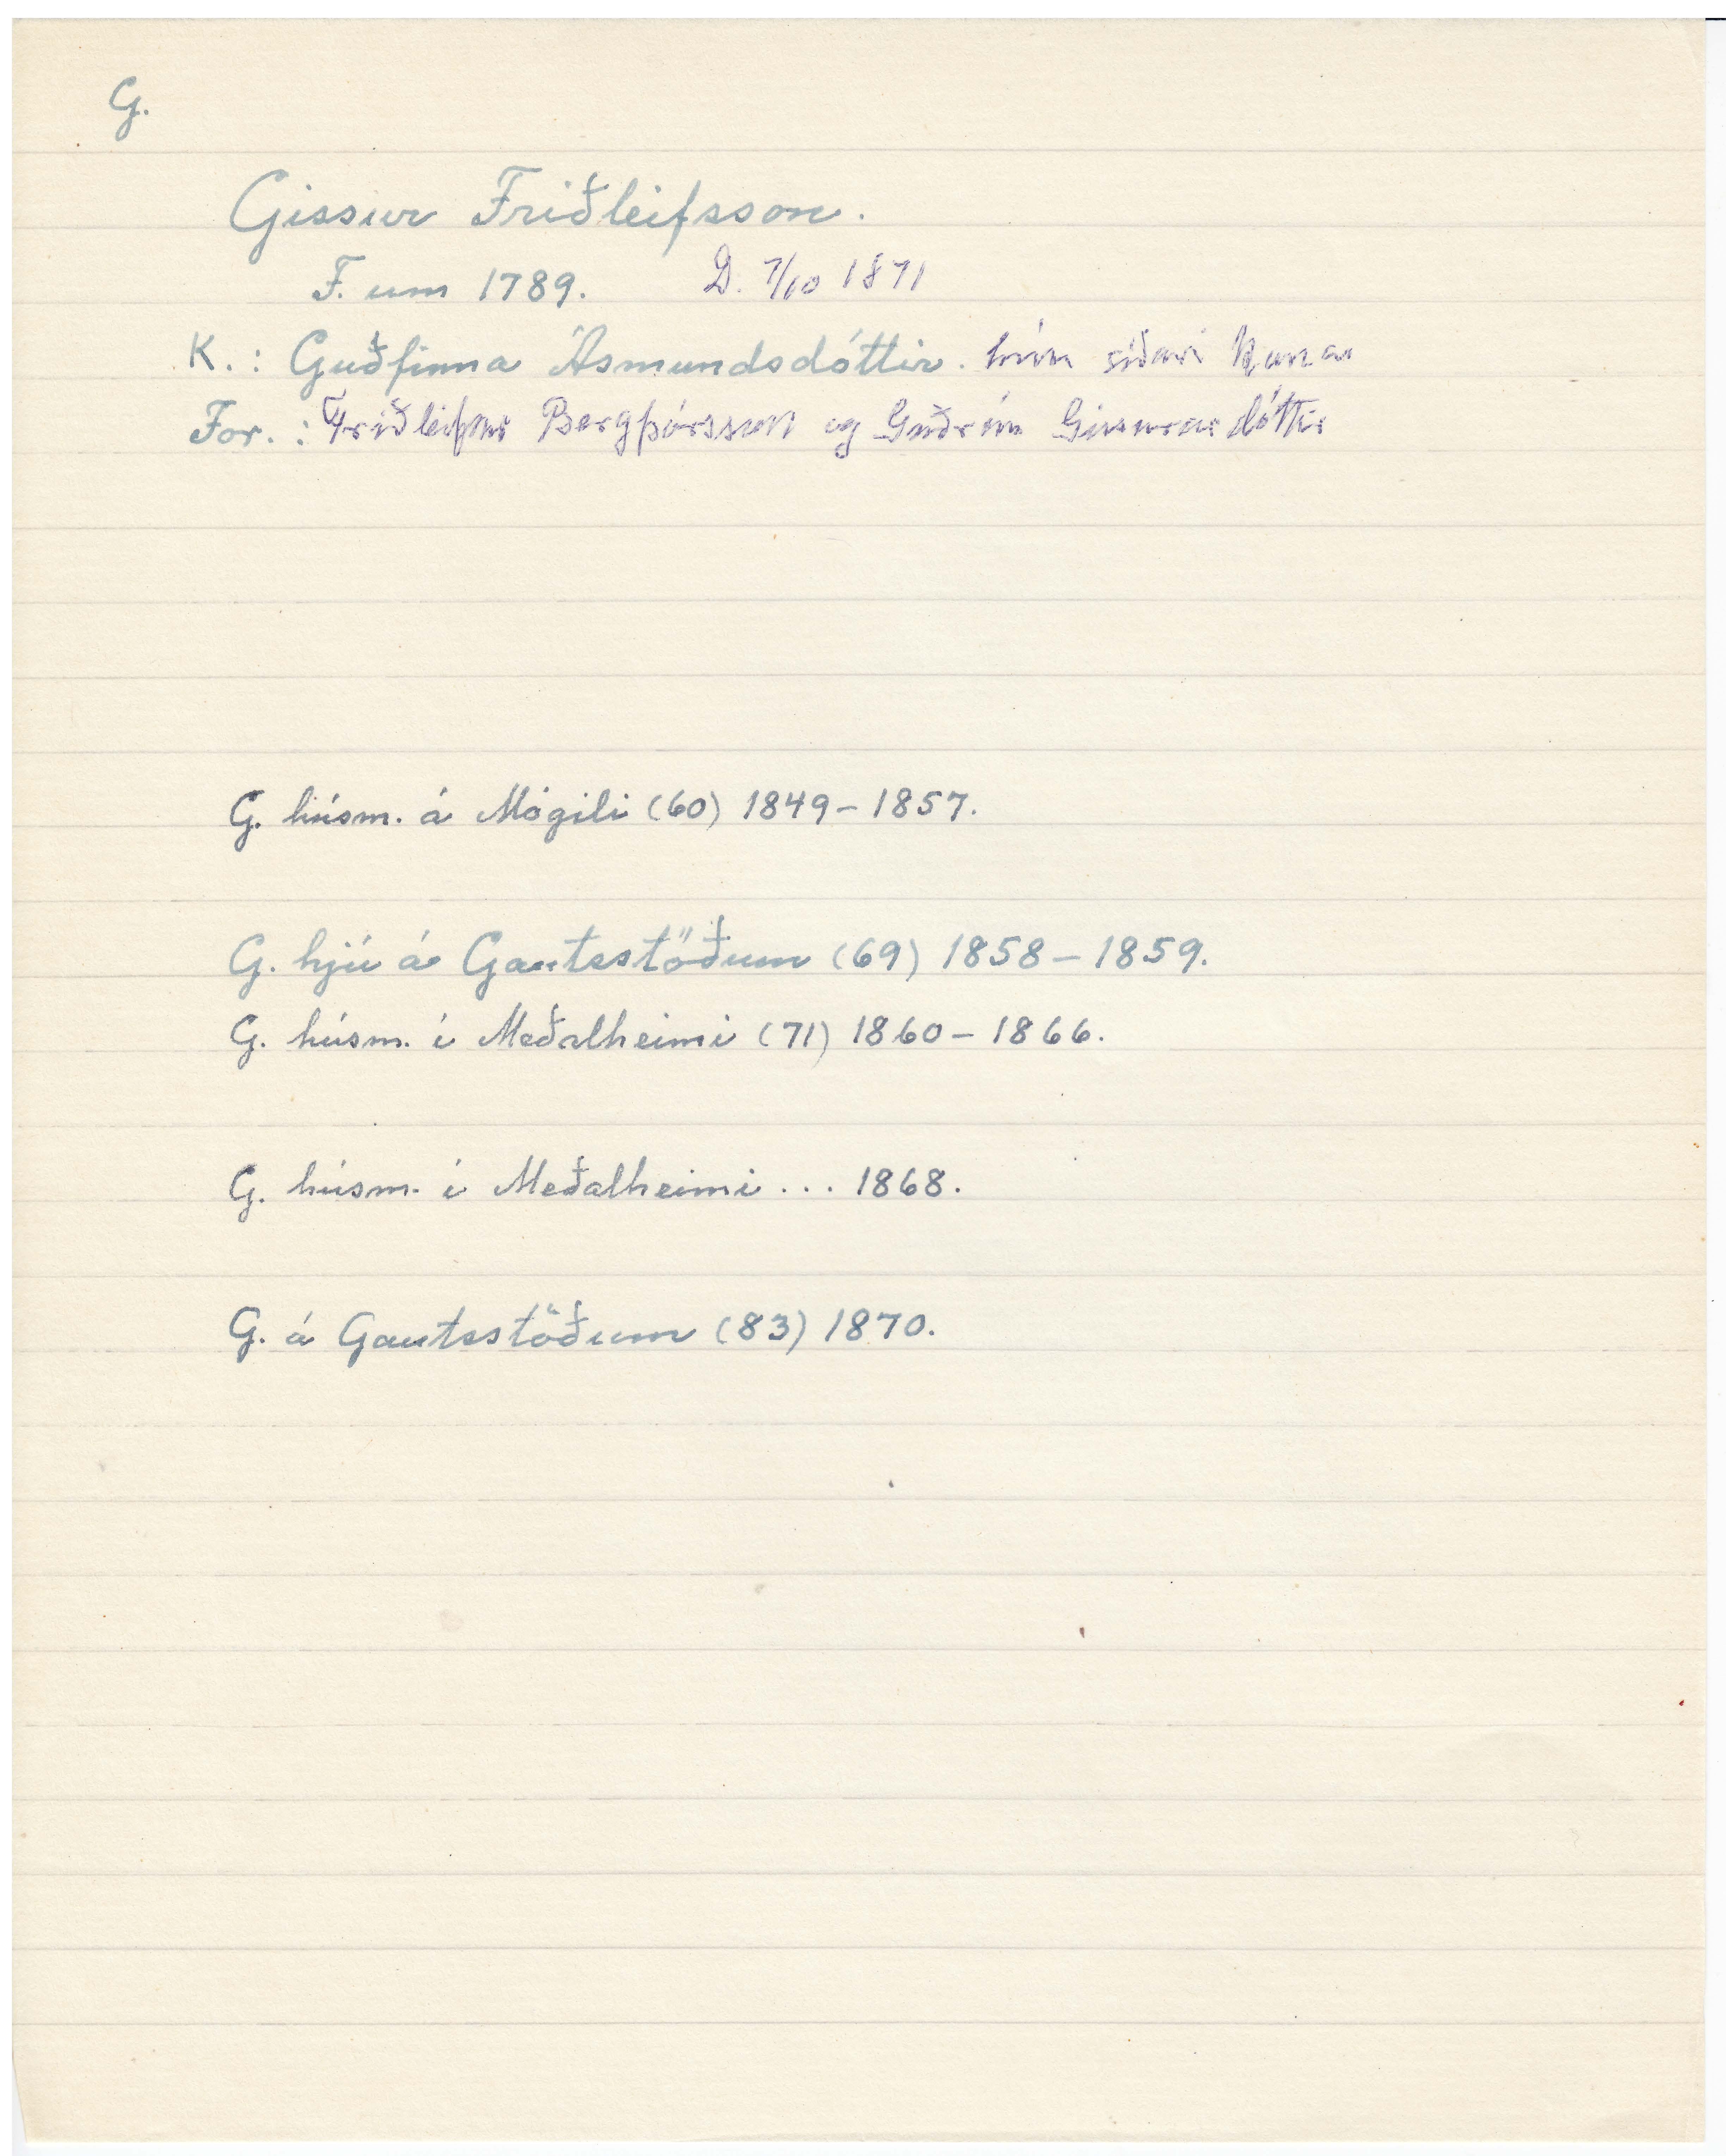 G.
Gissur Friðleifsson.
F. um 1789. D. 7/10 1871
K.: Guðfinna Ásmundsdóttir. hún síðari kona
For.: Friðleifur Bergþórsson og Guðrún Gissurardóttir
G. húsm. á Mógili (60) 1849-1857.
G. hjú á Gautsstöðum (69) 1858-1859.
G. húsm. í Meðalheimi (71) 1860-1866.
G. húsm. í Meðalheimi ... 1868.
G. á Gautsstöðum (83) 1870.